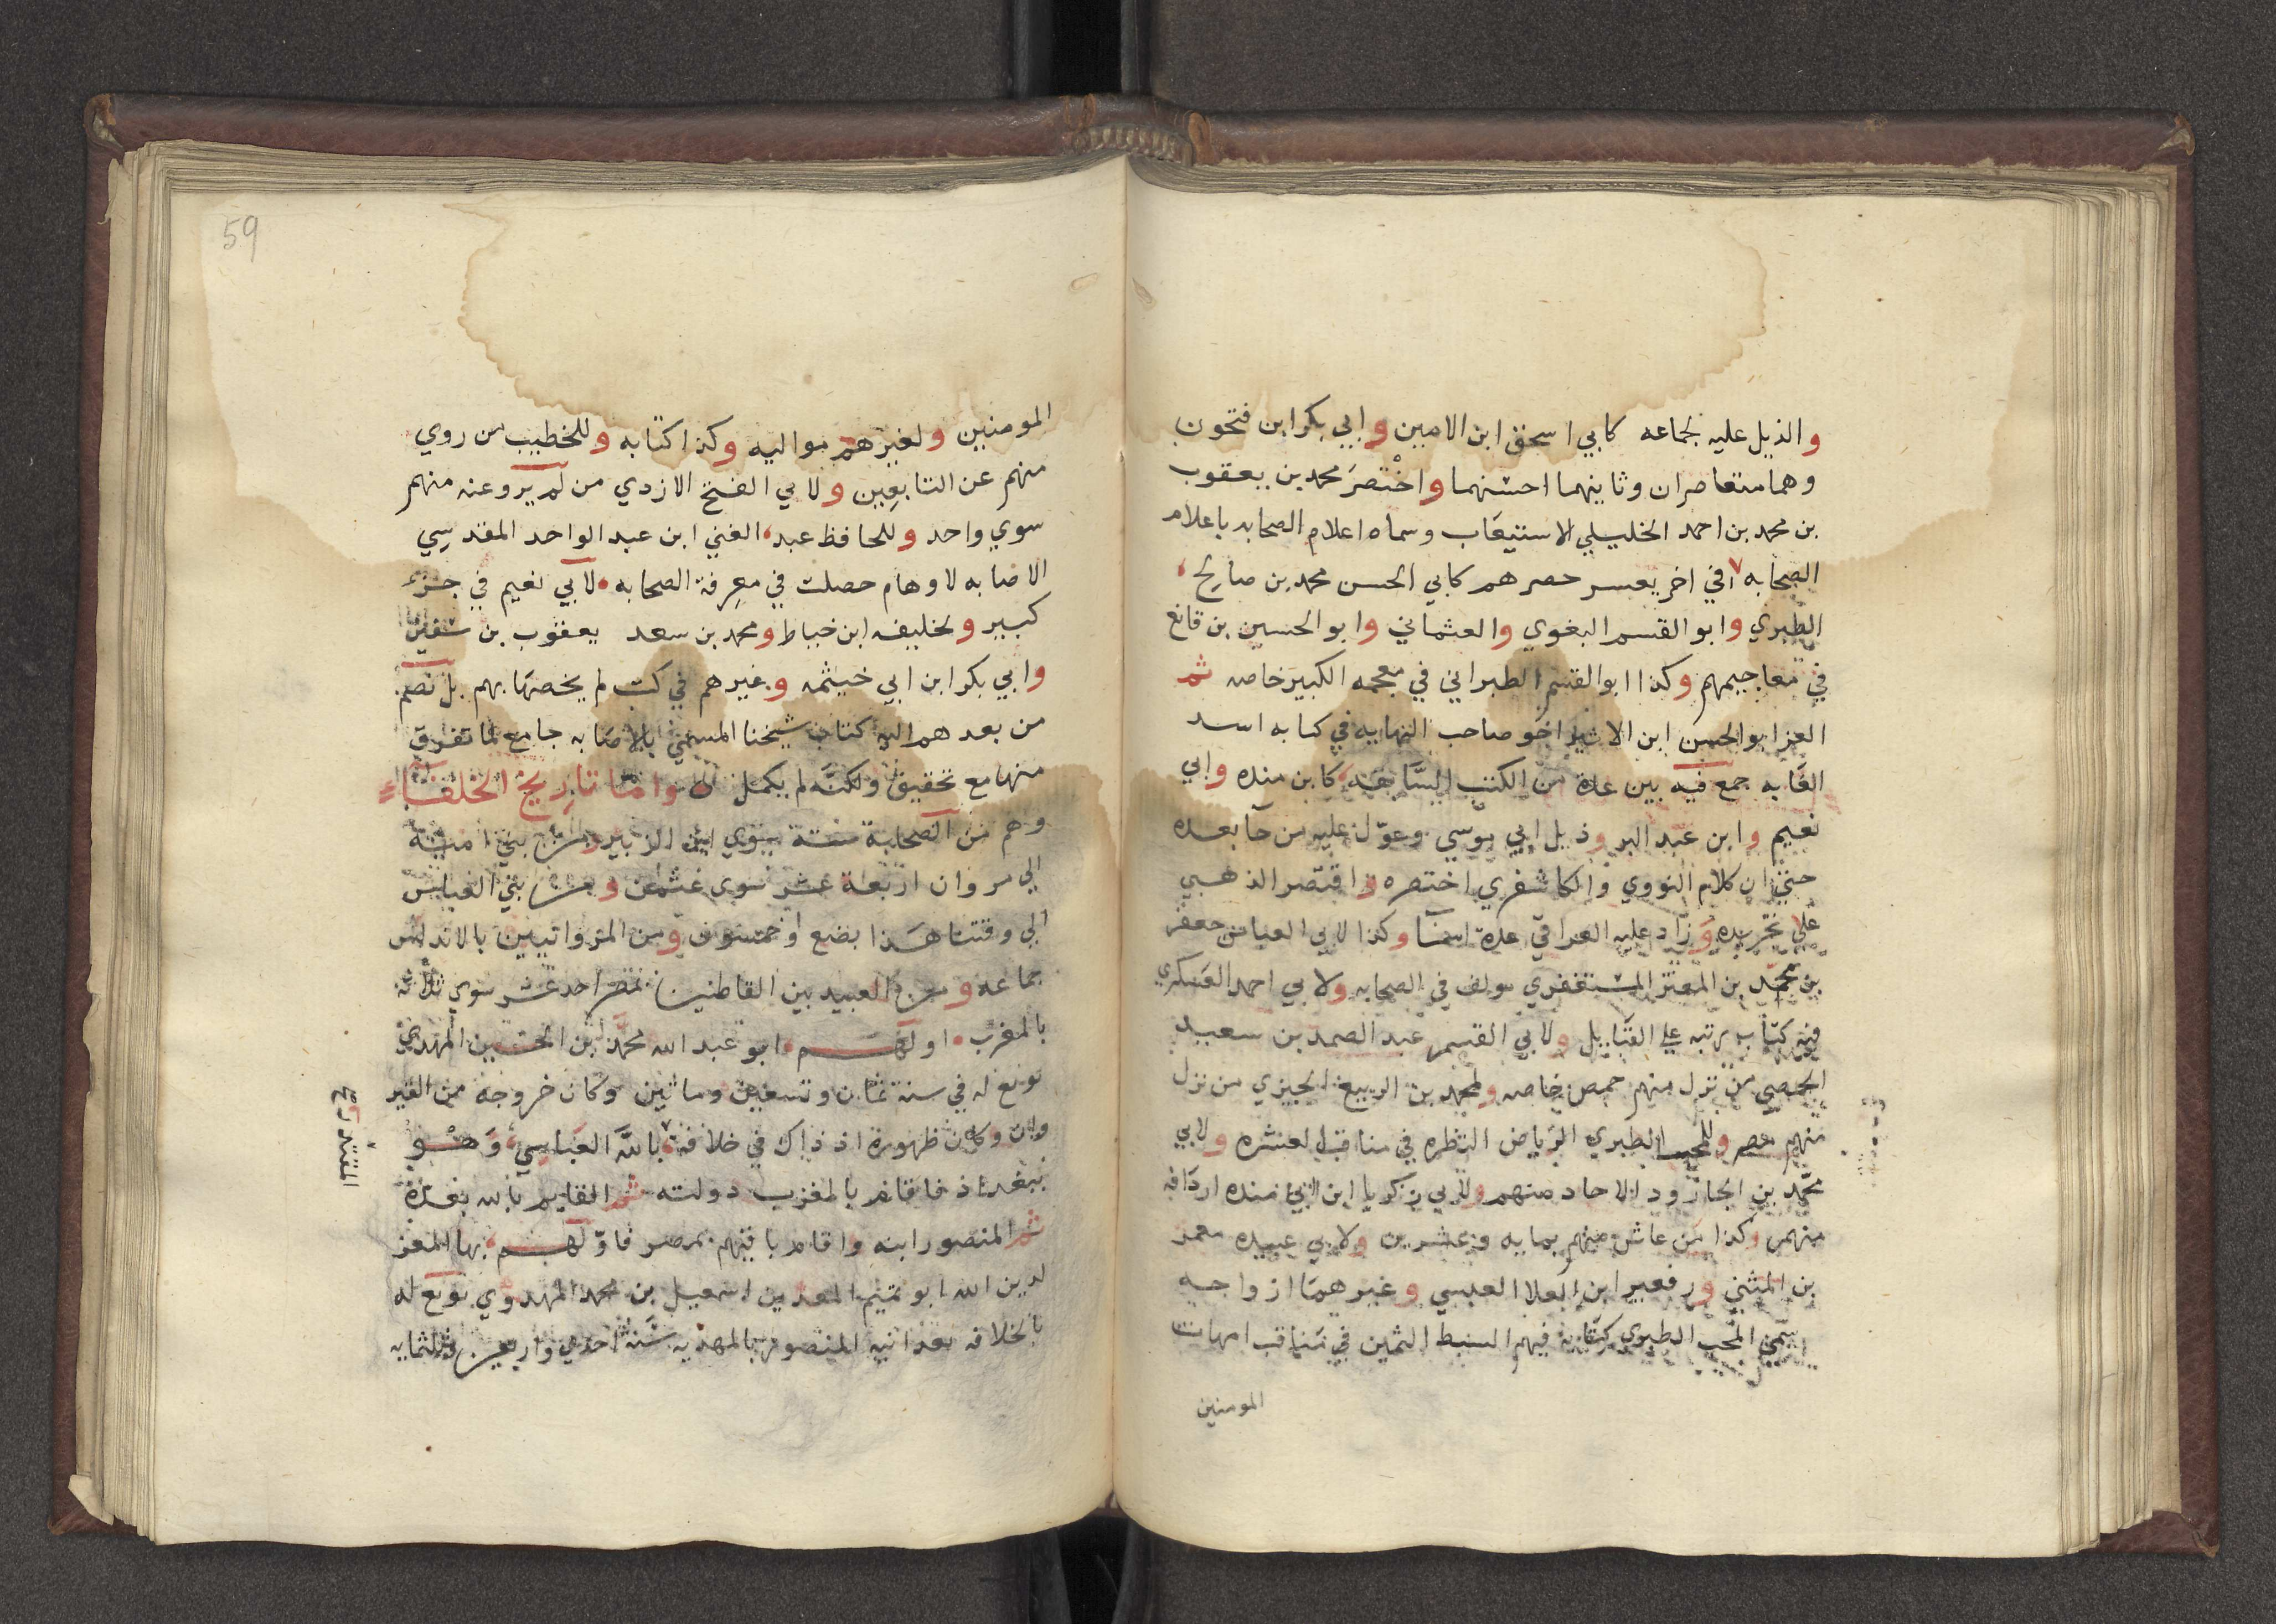 والذيل عليه لجماعه كابي اسحق ابن الامين وابي بكر ابن فتحون
وهما متعاصران وثانيهما احسنهما واختصر محمد بن يعقوب
بن محمد بن احمد الخليلي الاستيعاب وسماه اعلام الصحابه باعلام
الصحابه في اخر يعسر حصرهم كابي الحسن محمد بن صالح
الطبري وابو القسم البغوي والعثماني وابو الحسين بن قانع
في معاجيمهم وكذا ابو القسم الطبراني في معجمه الكبير خاصه ثم
العز ابو الحسن ابن الاثير اخو صاحب النهايه في كتابه اسد
الغابه جمع فيه بين عدة من الكتب السابقه كابن منده وابي
نعيم وابن عبد البر وذيل ابي موسي وعول عليه من جا بعده
حتي ان كلا من النووي والكاشغري اختصره واقتصر الذهبي
علي تجريده وزاد عليه العراقي عدة اسما وكذا لابي العباس جعفر
بن محمد بن المعتز المستغفري مولف في الصحابه ولابي احمد العسكري
فيه كتاب رتبه علي القبايل ولابي القسم عبد الصمد بن سعيد
الحمصي من نزل منهم حمص خاصه ولمحمد بن الربيع الجيزي من نزل
منهم مصر وللمحب الطبري الرياض النظره في مناقب العشره ولابي
محمد بن الجارود الاحاد منهم ولابي زكريا ابن منده اردافه
منهم وكذا من عاش منهم مايه وعشرين ولابي عبيده معمر
بن المثني وزهير ابن العلا العبسي وغيرهما ازواجه
سمي المحب الطبري كتابه فيهم السمط الثمين في مناقب امهات
المومنين
59
المومنين ولغيرهم مواليه وكذا كتابه وللخطيب من روي
منهم عن التابعين ولابي الفتح الازدي من لم يرو عنه منهم
سوي واحد وللحافظ عبد الغني ابن عبد الواحد المقدسي
الاصابه لاوهام حصلت في معرفة الصحابه لابي نعيم في جزء
كبير ولخليفه ابن خياط ومحمد بن سعد يعقوب بن سفين
وابي بكر ابن ابي خيثمه وغيرهم في كتب لم يخصها بهم بل نضم
من بعدهم اليهم كتاب شيخنا المسمي بالاصابه جامع لما تفرق
منها مع تحقيق ولكنه لم يكمل واما تاريخ الخلفاء
وهم من الصحابة ستة سوي ابن الزبير ومن بني امية
الي مروان اربعة عشر سوي عثمن ومن بني العباس
الي وقتنا هذا بضع وخمسون ومن المروانيين بالاندلس
جماعه ومن العبيديين القاطنين بمصر احد عشر سوي ثلاثه
بالمغرب اولهم ابو عبد الله محمد بن الحسين المهدي
بويع له في سنة ثمان وتسعين وماتين وكان خروجه من القير
وان وكان ظهوره اذ ذاك في خلافة بالله العباسي وهو
المقتدر صح
ببغداذ فاقام بالمغرب دولته ثم القايم بالله بعده
ثم المنصور ابنه واقام باقيهم بمصر فاولهم بها المعز
لدين الله ابو تميم المعد بن اسمعيل بن محمد المهدوي بويع له
بالخلافه بعد ابيه المنصور بالمهديه سنة احدي واربعين وثلثمايه